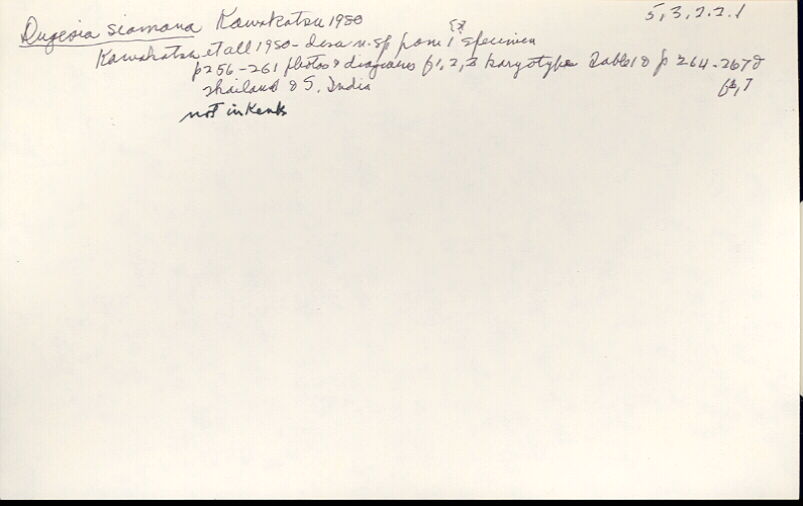 Dugesia siamana Kawakatsu 1980
5, 3, 2. 2. 1
Kawakatsu et all 1980 - desc n. sp from 1 specimen
p 256-261 photos & diagrams f 1, 2, 3 karyotype Table 1 & p 264-267 &
Thailand & S. India
not in Kenk